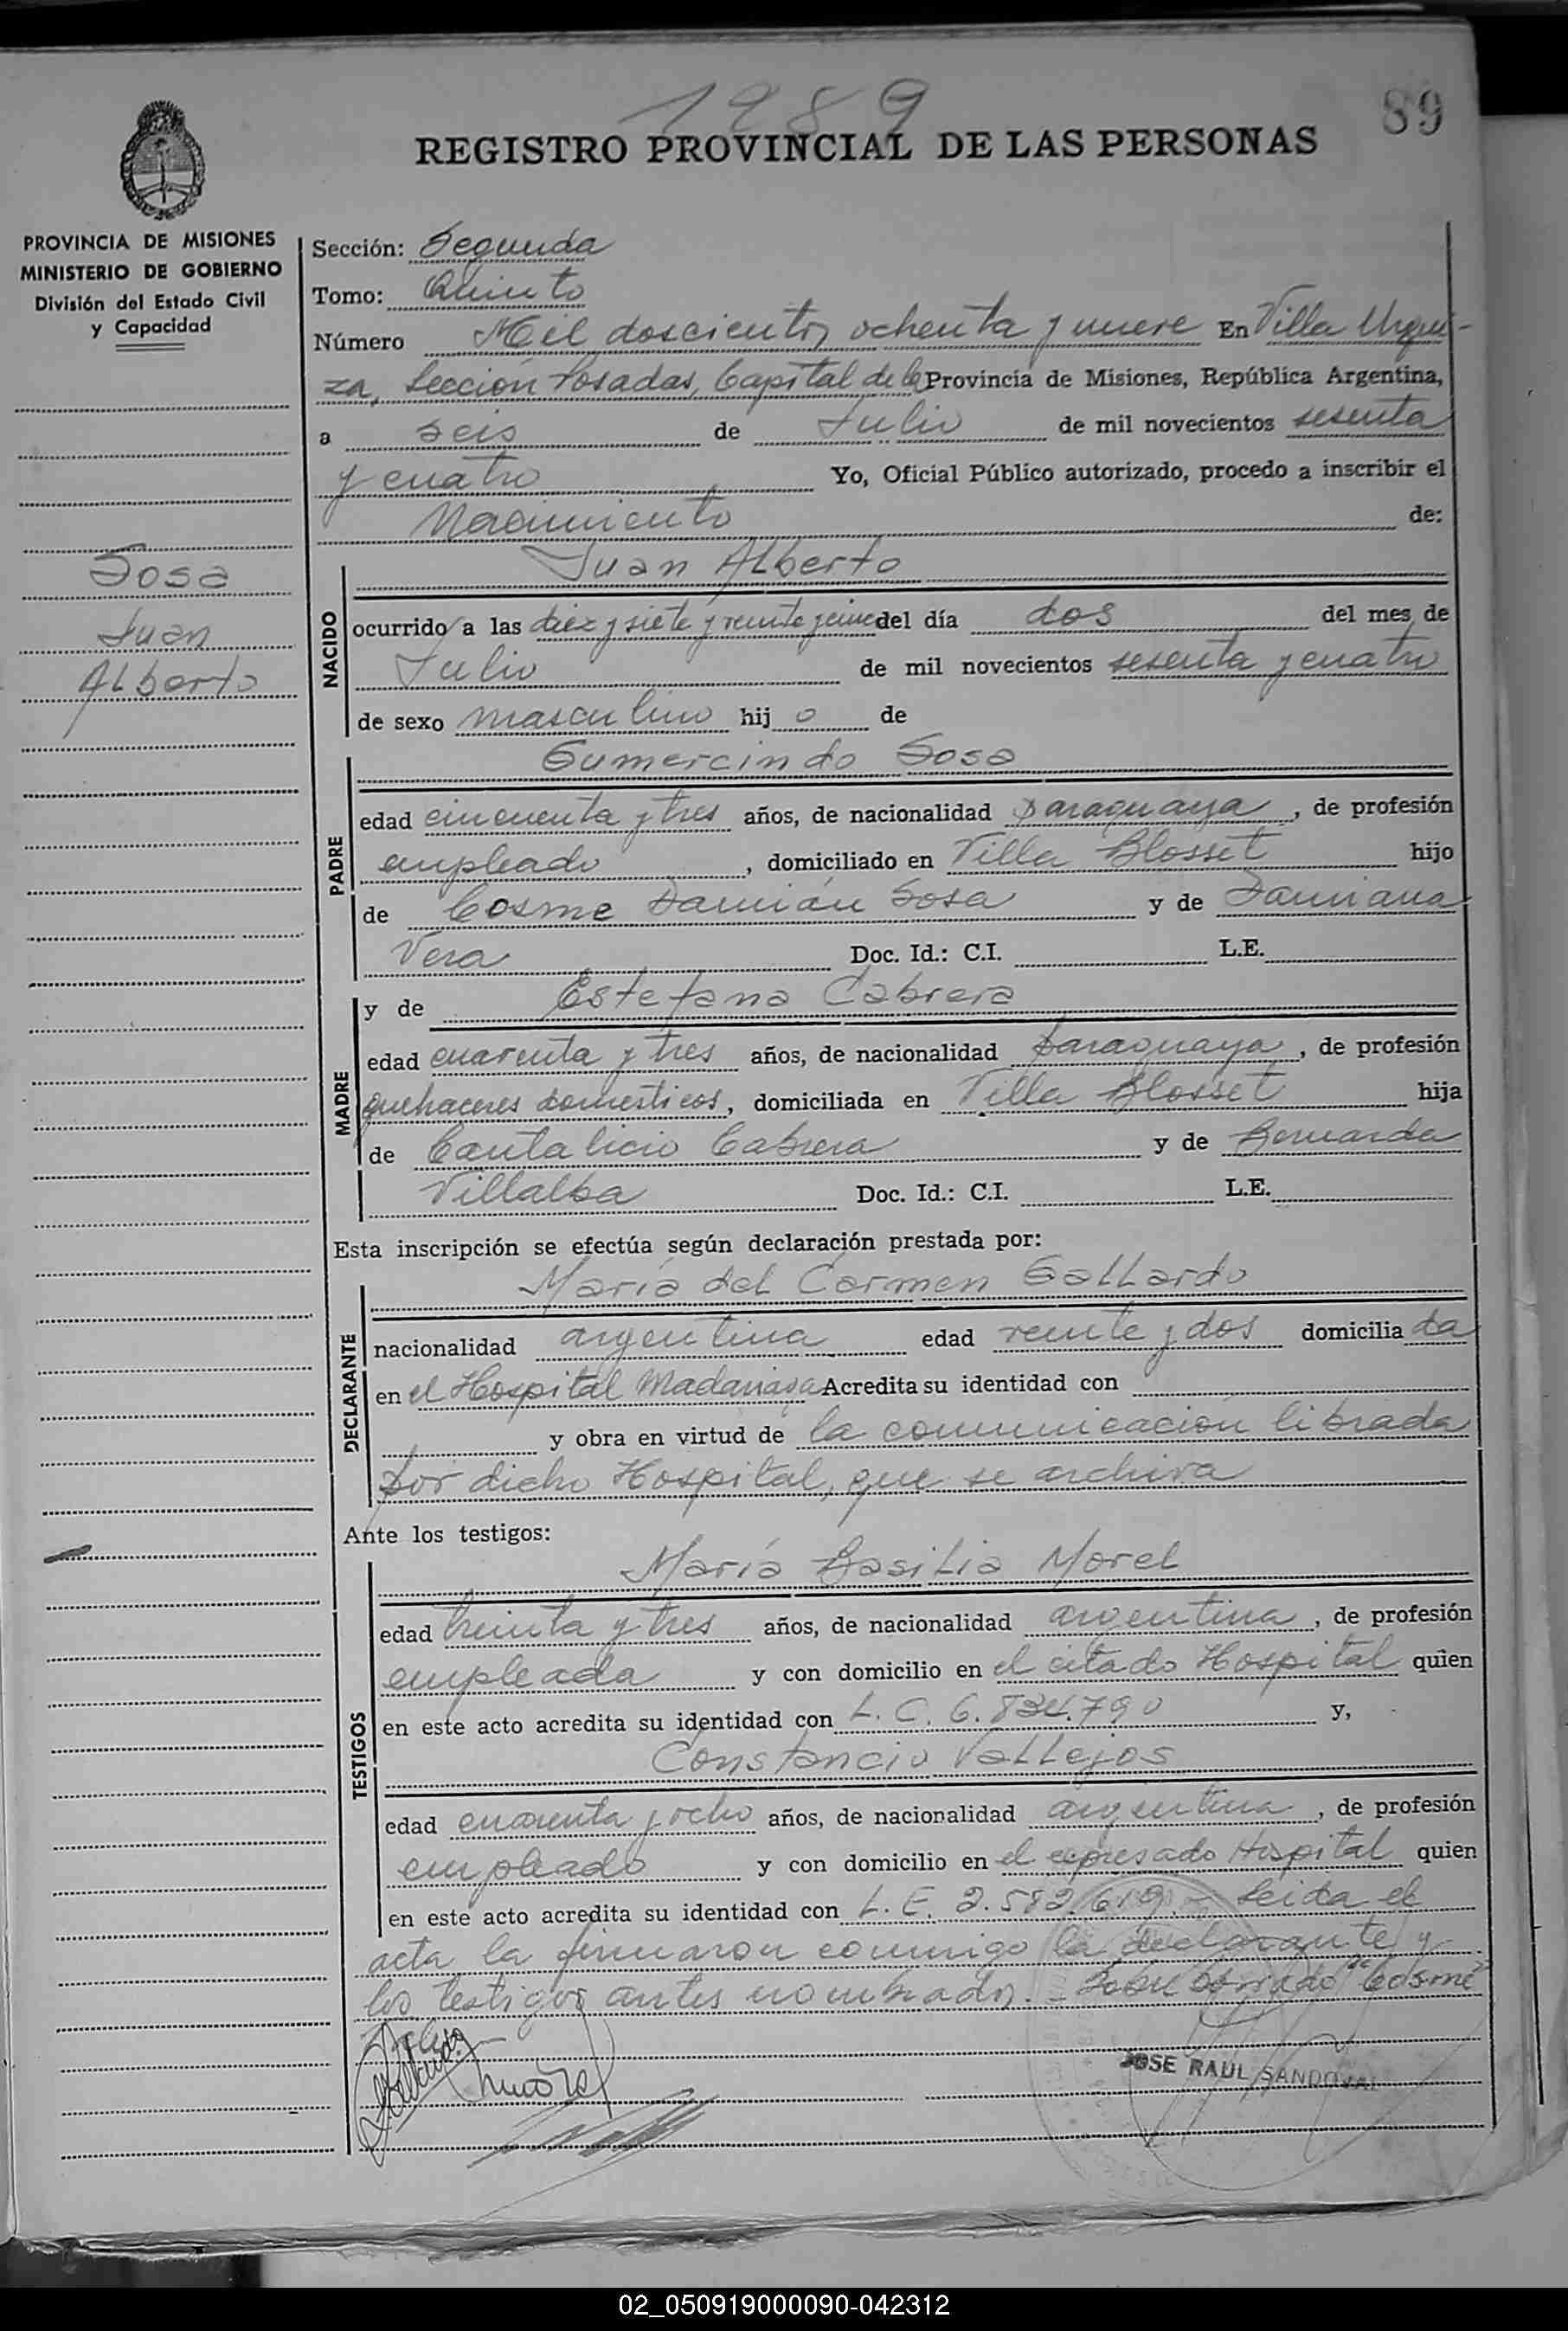 1289
89
REGISTRO PROVINCIAL DE LAS PERSONAS
PROVINCIA DE MISIONES
MINISTERIO DE GOBIERNO
División del Estado Civil
y Capacidad
Sosa
Juan
Alberto
Sección: Segunda
Tomo: Quinto
Número Mil doscientos ochenta y nueve En Villa Urqui-
za, Sección Posadas, Capital de la Provincia de Misiones, República Argentina,
a seis de Julio de mil novecientos sesenta
y cuatro Yo, Oficial Público autorizado, procedo a inscribir el
Nacimiento de:
NACIDO
Juan Alberto
ocurrido a las diez y siete y veinte y cinco del día dos del mes de
Julio de mil novecientos sesenta y cuatro
de sexo masculino hij o de
PADRE
Gumercindo Sosa
edad cincuenta y tres años, de nacionalidad paraguaya, de profesión
empleado, domiciliado en Villa Blosset hijo
de Cosme Damián Sosa y de Damiana
Vera Doc. Id.: C.I. L.E.
MADRE
y de Estefana Cabrera
edad cuarenta y tres años, de nacionalidad paraguaya, de profesión
quehaceres domesticos, domiciliada en Villa Blosset hija
de Cantalicio Cabrera y de Bernarda
Villalba Doc. Id.: C.I. L.E.
Esta inscripción se efectúa según declaración prestada por:
DECLARANTE
María del Carmen Gallardo
nacionalidad argentina edad veinte y dos domicilia da
en el Hospital Madariaga Acredita su identidad con
y obra en virtud de la comunicación librada
por dicho Hospital, que se archiva
Ante los testigos:
TESTIGOS
María Basilia Morel
edad treinta y tres años, de nacionalidad argentina, de profesión
empleada y con domicilio en el citado Hospital quien
en este acto acredita su identidad con L. C. 6.834.790 y,
Constancio Vallejos
edad cuarenta y ocho años, de nacionalidad argentina, de profesión
empleado y con domicilio en el expresado Hospital quien
en este acto acredita su identidad con L. E. 2.582.619.- Leida el
acta la firmaron conmigo la declarante y
los testigos antes nombrados.- Sobre borrado "Cosme"
Vale
JOSE RAUL SANDOVAL
02_050919000090-042312